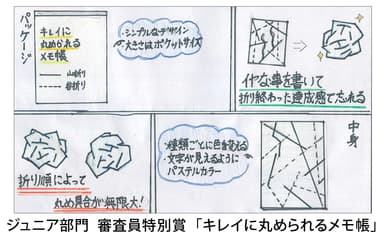 パッケージ
キレイに
丸められる
メモ帳
山折り
谷折り
・シンプルなデザイン
・大きさはポケットサイズ
イヤな事を書いて
折り終わった達成感で忘れる
折り順によって
丸め具合が無限大!
・種類ごとに色を変える
・文字が見えるように
パステルカラー
中身
ジュニア部門 審査員特別賞 「キレイに丸められるメモ帳」